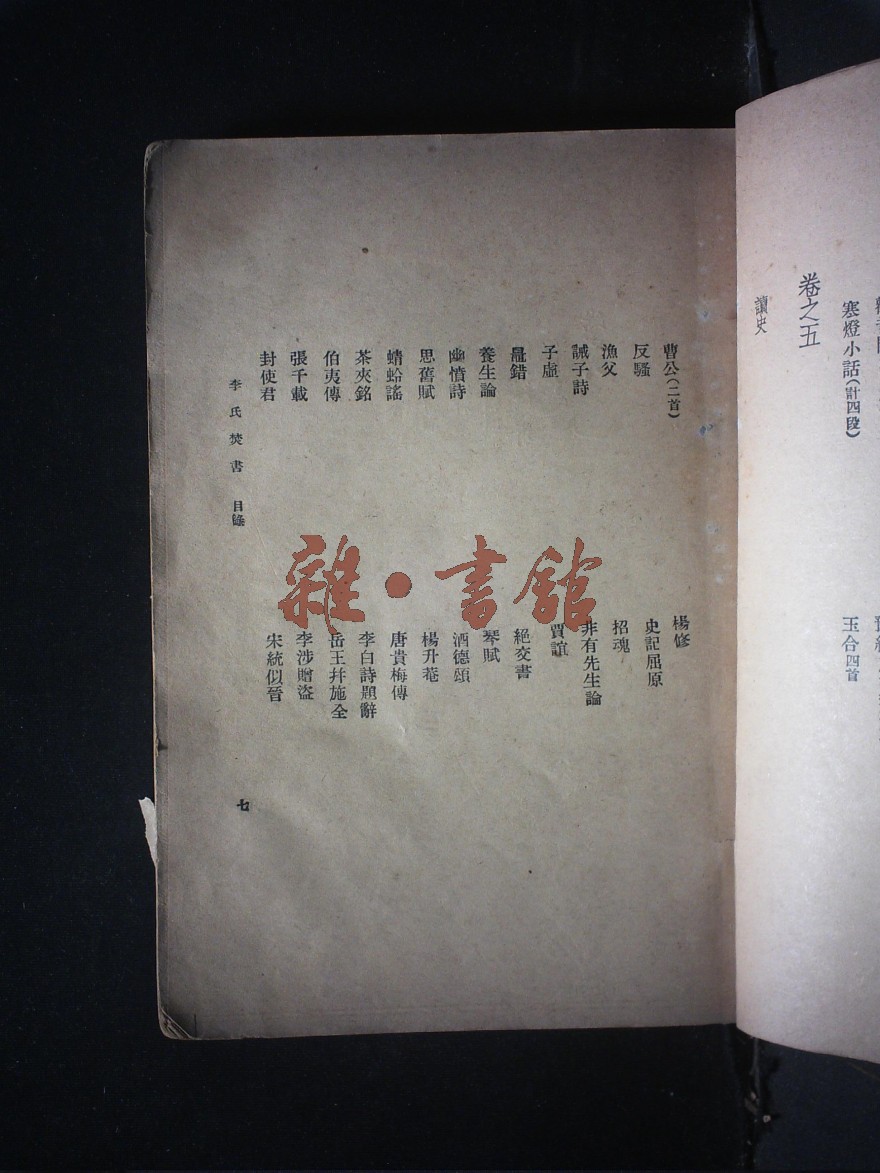 寒燈小話（計四段）
玉合四首
卷之五
讀史
曹公（二首）
楊修
反騷
史記屈原
漁父
招魂
誡子詩
非有先生論
子虛
賈誼
鼂錯
絕交書
養生論
琴賦
幽憤詩
酒德頌
思舊賦
楊升菴
蜻蛉謠
唐貴梅傳
茶夾銘
李白詩題辭
伯夷傳
岳王幷施全
張千載
李涉贈盜
封使君
宋統似晉
李氏焚書 目錄
七
雜·書館